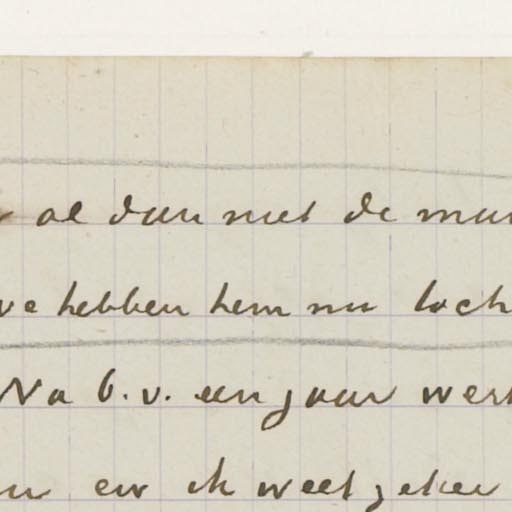 al dan niet de man
we hebben hem nu toch
Na b.v. een jaar werk
en ik weet zeker